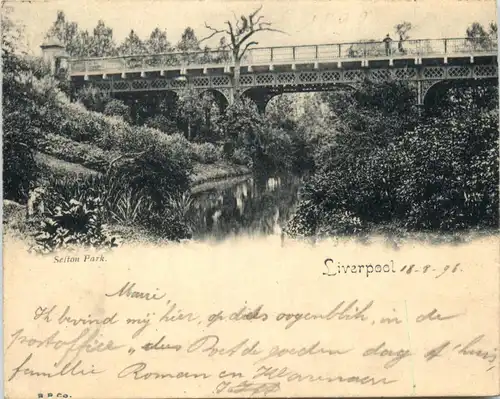 Sefton Park.
Liverpool 18-8-98.
Marie
Ik bevind mij hier, op dit oogenblik, in de
postoffice " dus Bret de goeden dag of
familie Roman en
B.P.Co.